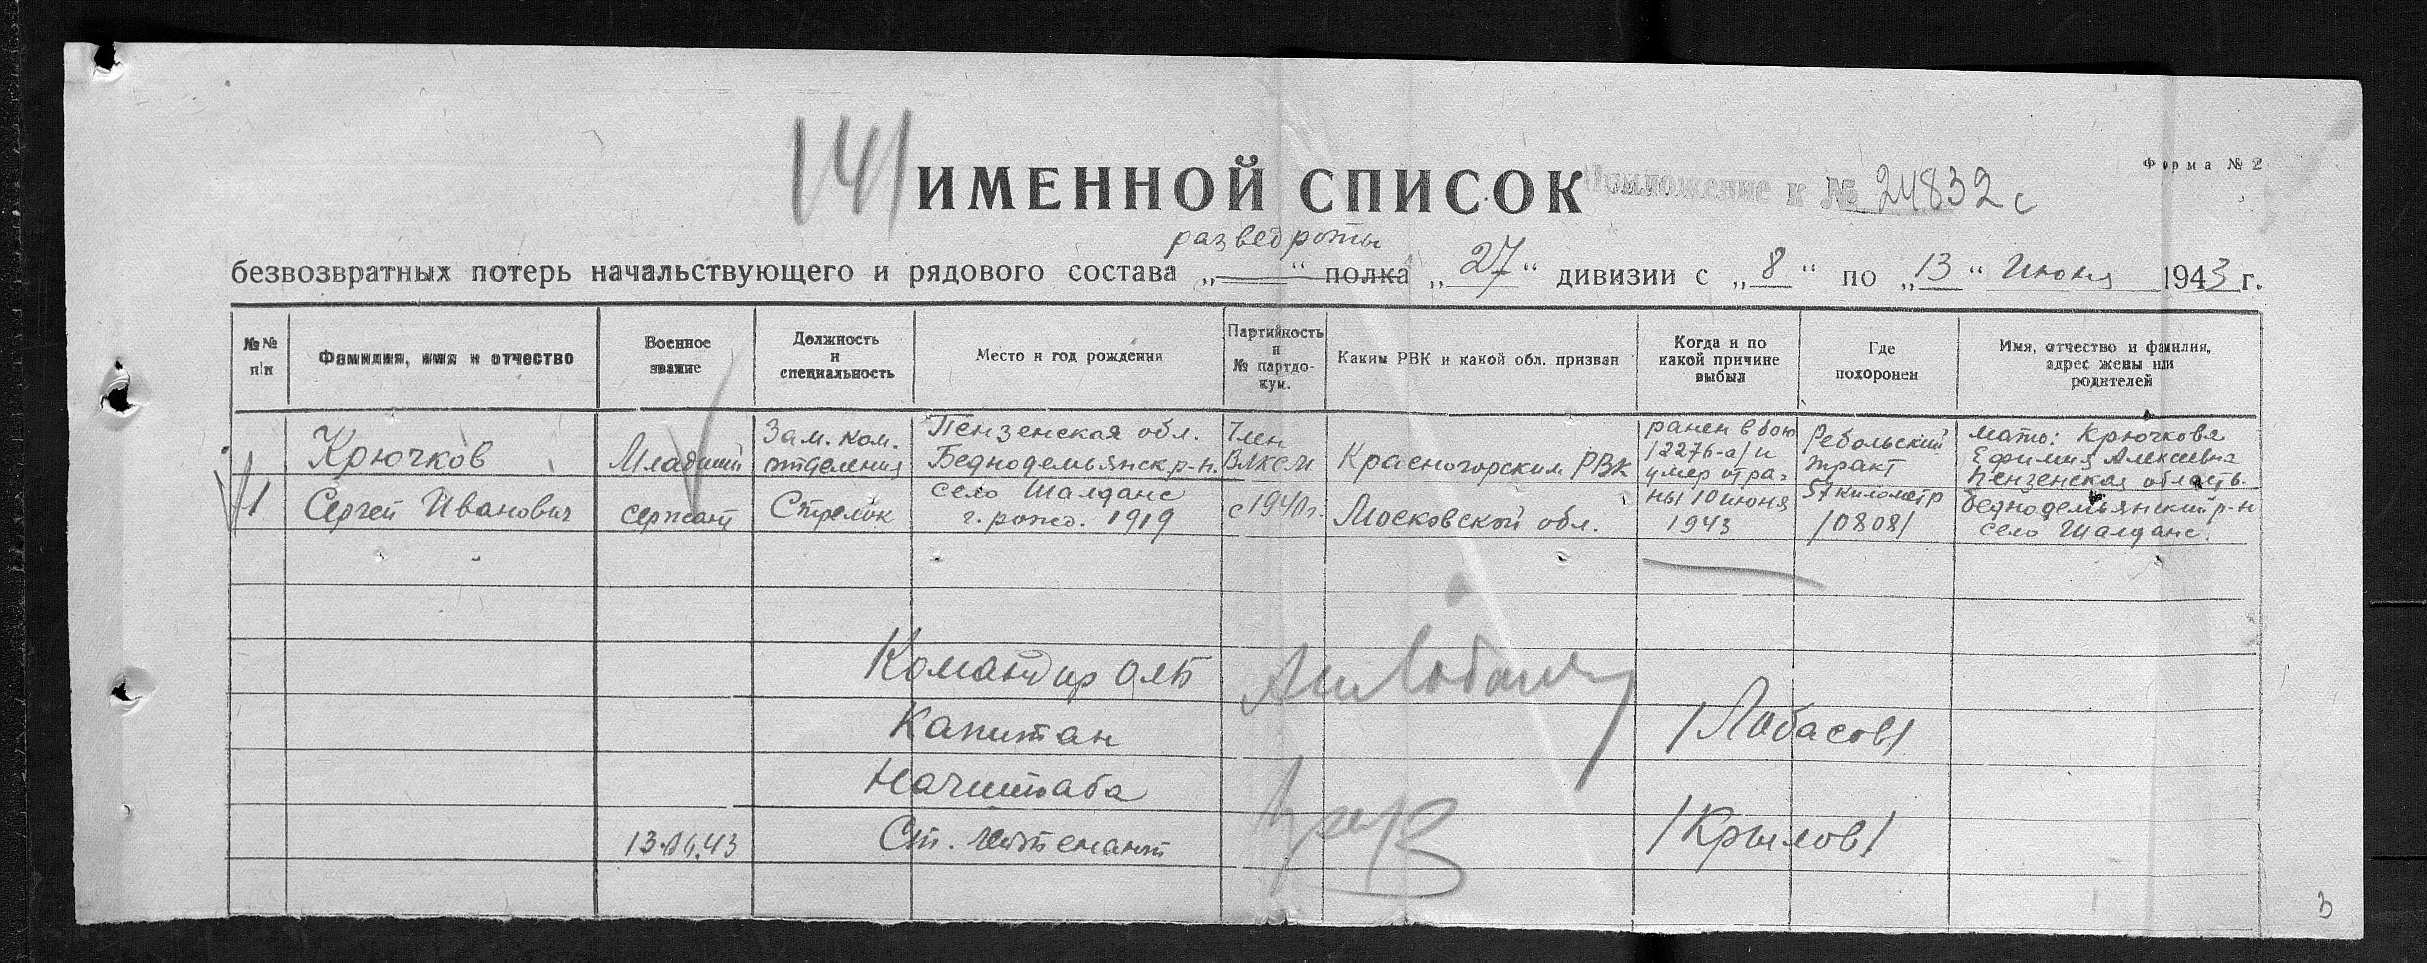 141
ИМЕННОЙ СПИСОК
Приложение к № 24832с
Форма № 2
разведроты
безвозвратных потерь начальствующего и рядового состава „ “ полка „27“ дивизии с „8“ по „13“ Июня 1943 г.
№№ п/п
Фамилия, имя и отчество
Военное звание
Должность и специальность
Место и год рождения
Партийность и № партдокум.
Каким РВК и какой обл. призван
Когда и по какой причине выбыл
Где похоронен
Имя, отчество и фамилия, адрес жены или родителей
1
Крючков
Сергей Иванович
Младший
сержант
Зам. ком.
отделения
Стрелок
Пензенская обл.
Беднодемьянск р-н.
село Шалданс
г. рожд. 1919
Член
ВЛКСМ
с 1940г.
Красногорским РВК
Московской обл.
ранен в бою
/2276-а/ и
умер от ра-
ны 10 июня
1943
Ребольский
тракт
57 километр
/0808/
мать: Крючкова
Ефимия Алексеевна
Пензенская область.
Беднодемьянский р-н
село Шалданс.
Командир
Капитан
/Лобасов/
Начштаба
13.06.43
Ст. лейтенант
/Крылов/
3